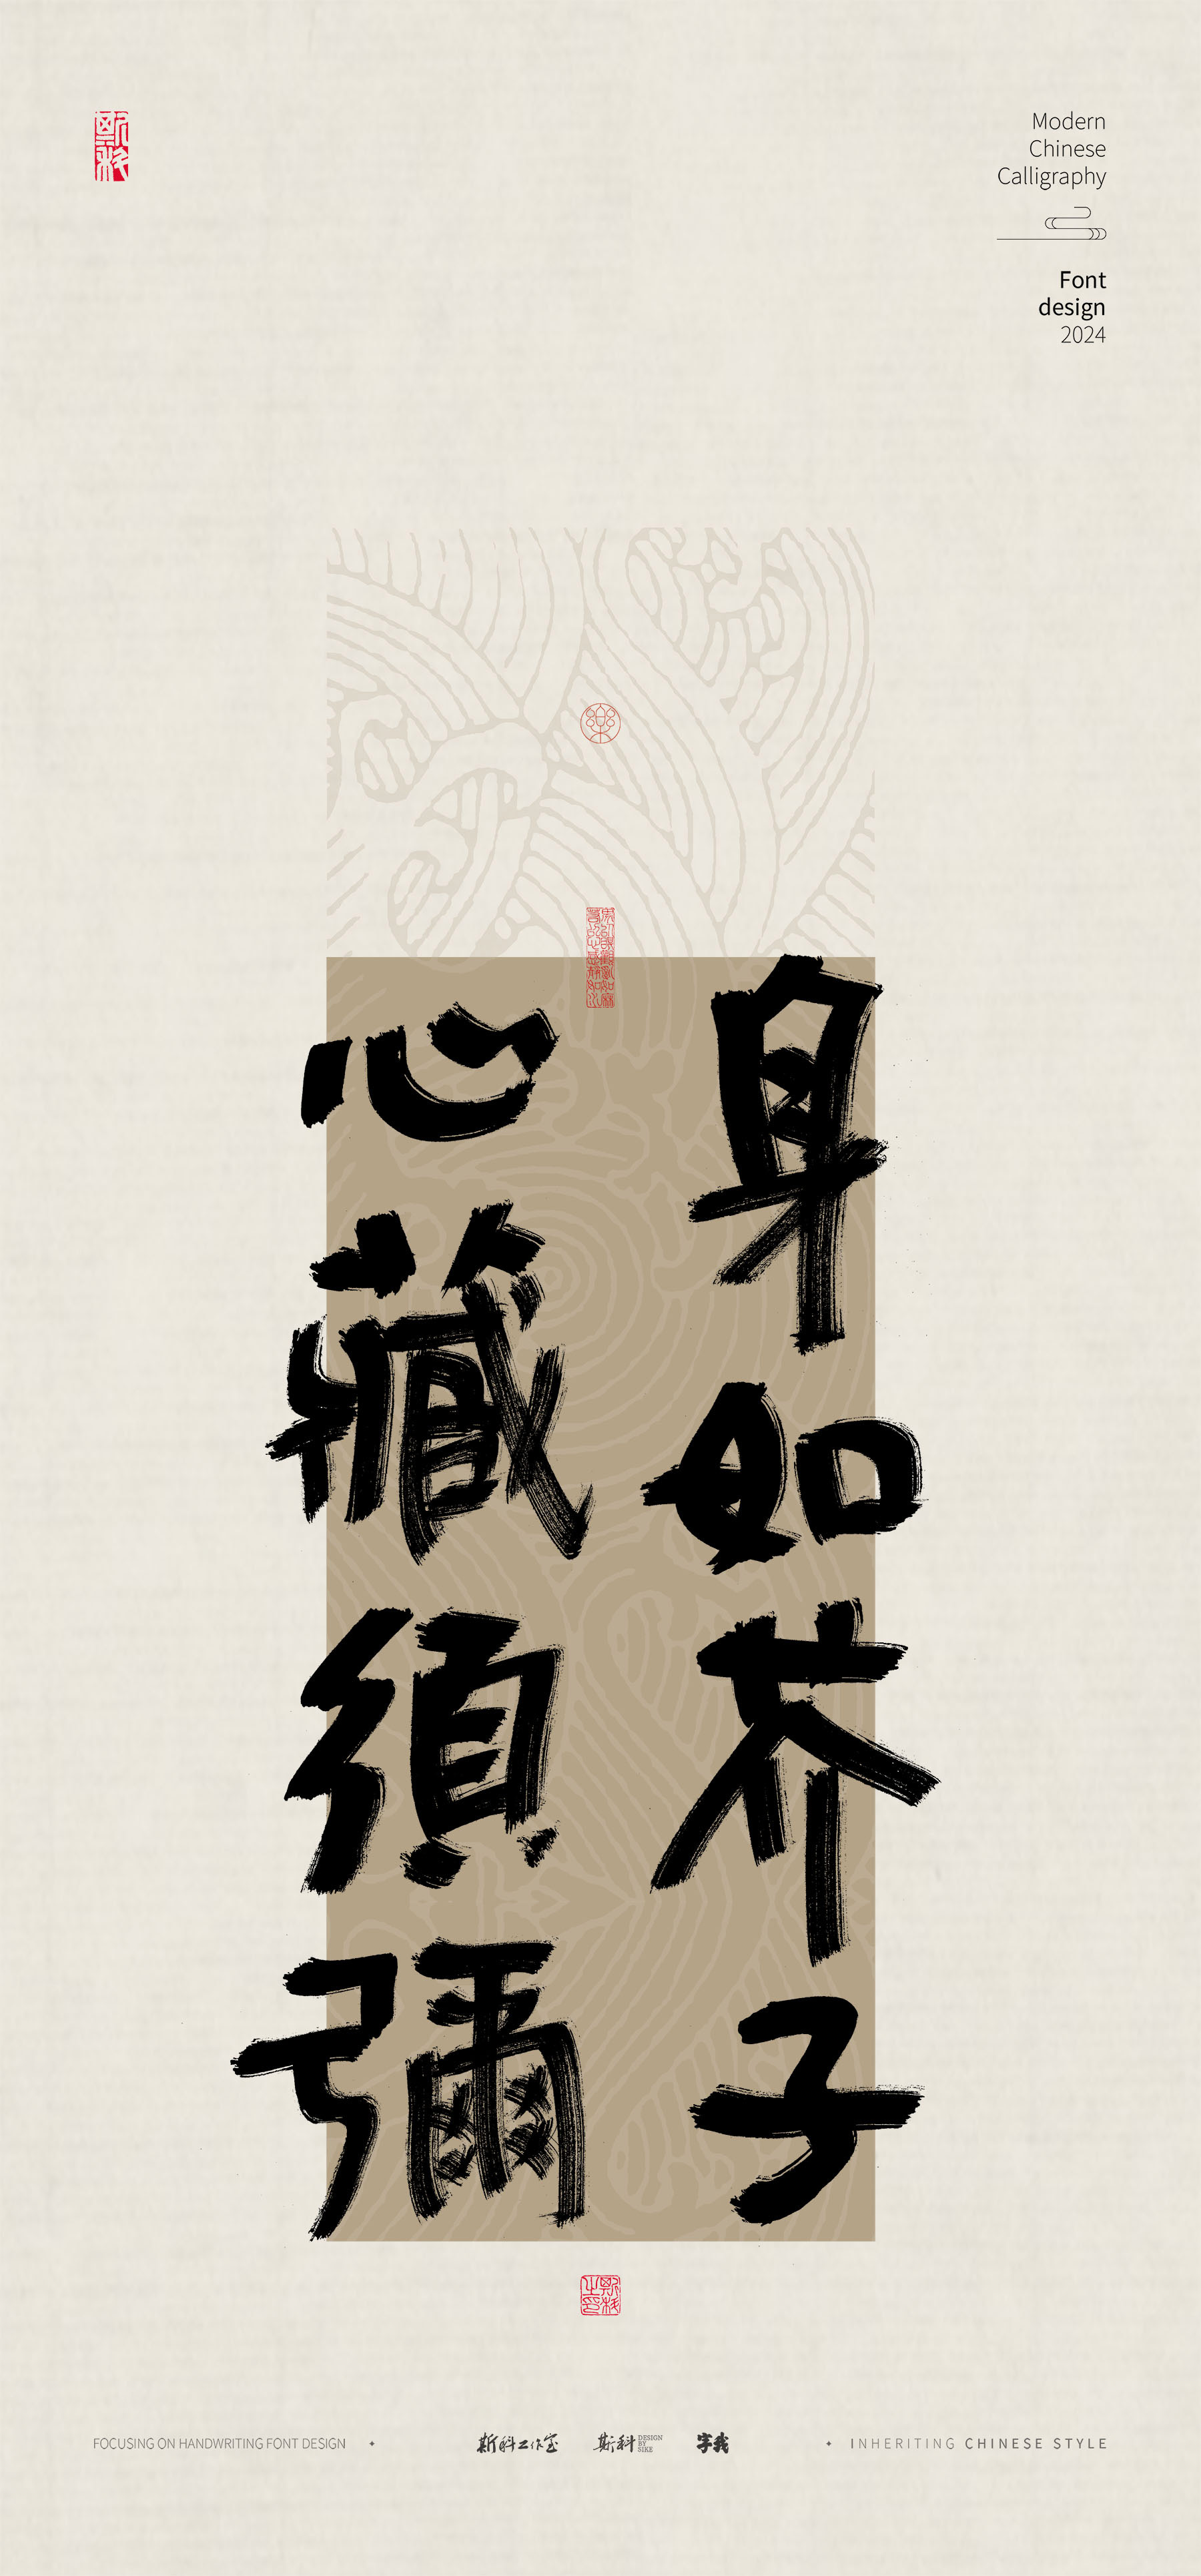 斯科
Modern
Chinese
Calligraphy
Font
design
2024
身如芥子
心藏須彌
斯科之印
FOCUSING ON HANDWRITING FONT DESIGN
斯科工作室
斯科
DESIGN
BY
SIKE
字我
INHERITING CHINESE STYLE